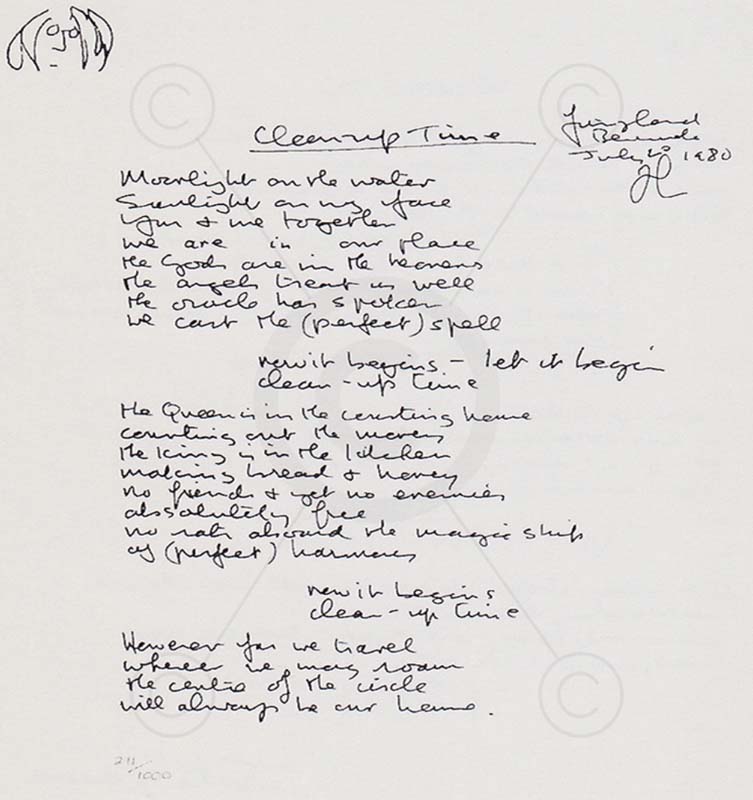 Clean-up Time
Fairyland
Bermuda
July 20 1980
JL
Moonlight on the water
Sunlight on my face
You & me together
we are in our place
the Gods are in the heavens
the angels treat us well
the oracle has spoken
we cast the (perfect) spell
now it begins - let it begin
clean-up time
the Queen is in the counting house
counting out the money
the King is in the kitchen
making bread & honey
no friends & yet no enemies
absolutely free
no rats aboard the magic ship
of (perfect) harmony
now it begins
clean-up time
However far we travel
wherever we may roam
the centre of the circle
will always be our home.
211/1000